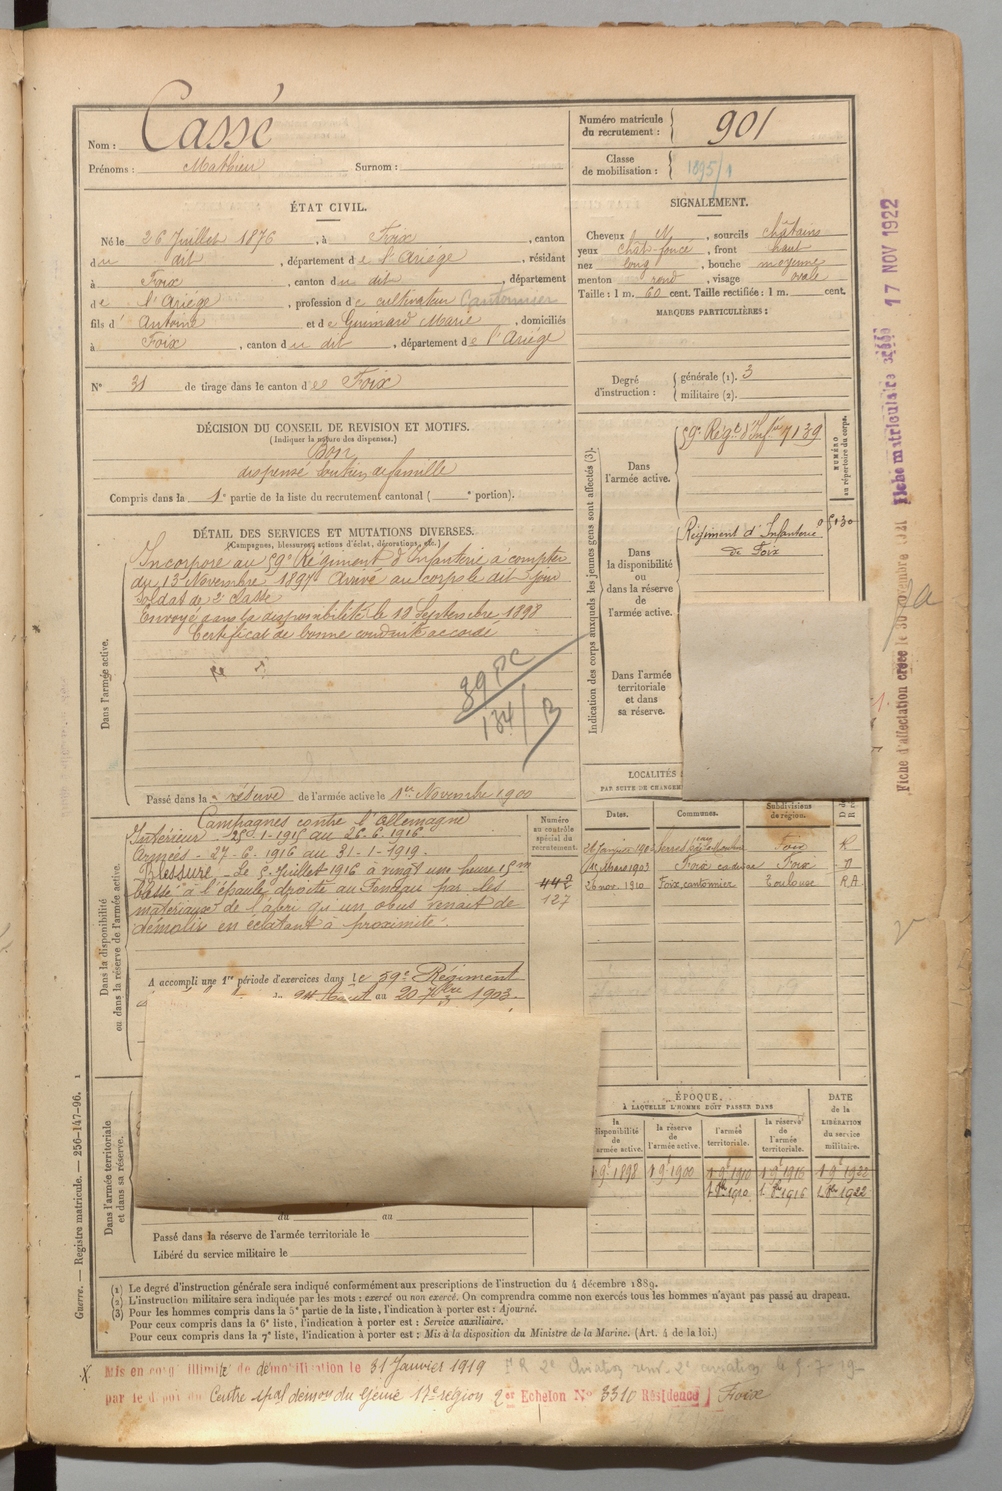 Nom : Cassé
Prénoms : Mathieu Surnom :
Numéro matricule du recrutement : 901
Classe de mobilisation : 1895/
ÉTAT CIVIL.
Né le 26 Juillet 1876, à Foix, canton
du dit, département de l'Ariège, résidant
à Foix, canton du dit, département
de l'Ariège, profession de cultivateur Cantonnier
fils d'Antoine et de Guimard Marie, domiciliés
à Foix, canton du dit, département de l'Ariège
N° 31 de tirage dans le canton de Foix
SIGNALEMENT.
Cheveux et, sourcils châtains
yeux chât-foncé, front haut
nez long, bouche moyenne
menton rond, visage ovale
Taille : 1 m. 60 cent. Taille rectifiée : 1 m. cent.
MARQUES PARTICULIÈRES :
Degré d'instruction : générale (1). 3
militaire (2).
DÉCISION DU CONSEIL DE REVISION ET MOTIFS.
(Indiquer la nature des dispenses.)
Bon
dispensé soutien de famille
Compris dans la 1e partie de la liste du recrutement cantonal ( e portion).
Indication des corps auxquels les jeunes gens sont affectés (3).
NUMÉRO au répertoire du corps.
Dans l'armée active.
59e Rég. d'Inf. 7139
Dans la disponibilité ou dans la réserve de l'armée active.
Régiment d'Infanterie
de Foix
Dans l'armée territoriale et dans sa réserve.
DÉTAIL DES SERVICES ET MUTATIONS DIVERSES.
(Campagnes, blessures, actions d'éclat, décorations, etc.)
Dans l'armée active.
Incorporé au 59e Régiment d'Infanterie à compter
du 13 Novembre 1897 Arrivé au corps le dit jour
soldat de 2e classe
Envoyé dans la disponibilité le 19 Septembre 1898
Certificat de bonne conduite accordé
Passé dans la réserve de l'armée active le 1er Novembre 1900
Dans la disponibilité ou dans la réserve de l'armée active.
Campagnes contre l'Allemagne
Intérieur - 25-1-1915 au 26.6.1916.
Armées - 27-6.1916 au 31-1-1919.
Blessure - Le 5 Juillet 1916 à vingt une heure 15m
blessé à l'épaule droite au par les
matériaux de l'abri qu'un obus venait de
démolir en éclatant à proximité.
A accompli une 1re période d'exercices dans le 59e Régiment
au 20 7bre 1903.
Numéro au contrôle spécial du recrutement.
442
127
LOCALITÉS
PAR SUITE DE CHANGEM
Dates. Communes. Subdivisions de région.
Foix R
Mars 1903 Foix Foix D
26 nov. 1910 Foix, cantonnier Toulouse R.A.
Dans l'armée territoriale et dans sa réserve.
du au
Passé dans la réserve de l'armée territoriale le
Libéré du service militaire le
ÉPOQUE
À LAQUELLE L'HOMME DOIT PASSER DANS
la disponibilité de l'armée active. la réserve de l'armée active. l'armée territoriale. la réserve de l'armée territoriale.
DATE de la LIBÉRATION du service militaire.
1 9e 1898 1 9e 1900 1 9e 1910 1 9e 1916 1 9e 1922
1 8bre 1910. 1 8bre 1916 1 8bre 1922
(1) Le degré d'instruction générale sera indiqué conformément aux prescriptions de l'instruction du 4 décembre 1889.
(2) L'instruction militaire sera indiquée par les mots : exercé ou non exercé. On comprendra comme non exercés tous les hommes n'ayant pas passé au drapeau.
(3) Pour les hommes compris dans la 5e partie de la liste, l'indication à porter est : Ajourné.
Pour ceux compris dans la 6e liste, l'indication à porter est : Service auxiliaire.
Pour ceux compris dans la 7e liste, l'indication à porter est : Mis à la disposition du Ministre de la Marine. (Art. 4 de la loi.)
Guerre. — Registre matricule. — 256-147-96. 1
Mis en congé illimité de démobilisation le 31 Janvier 1919
par le dépôt du Centre démon du Génie 17e région 2er Echelon N° 3310 Résidence Foix
Fiche matriculaire 17 NOV 1922
Fiche d'affectation créée le 30